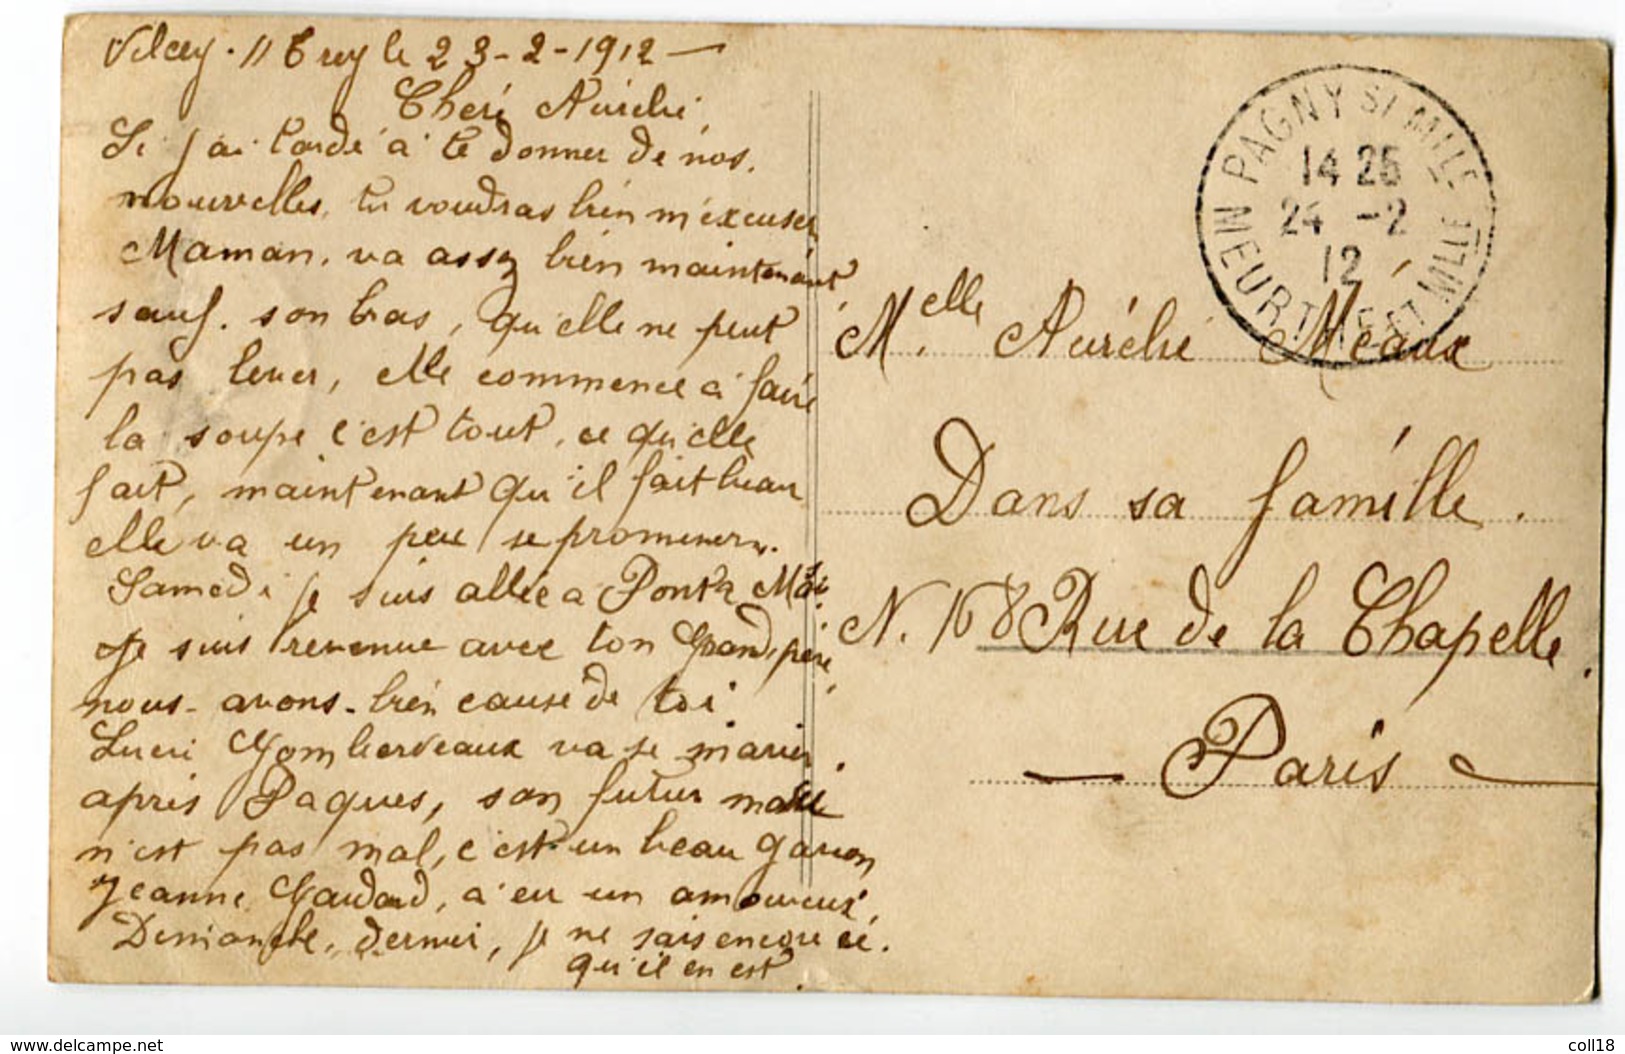 Vilcey. // Trey le 23-2-1912 —
Cheré Aurélie,
Si j'ai tardé à te donner de nos.
nouvelles, tu voudras bien m'excuser
Maman. va assez bien maintenant
sauf. son bras, qu'elle ne peut
pas lever, elle commence à faire
la soupe c'est tout, ce qu'elle
fait, maintenant qu'il fait beau
elle va un peu se promener.
Samedi je suis allée a Pont à Mon
Je suis revenue avec ton Grand, père,
nous- avons- bien causé de toi.
Gomberveaux va se marier.
après Paques, son futur mari
n'est pas mal, c'est un beau garcon
Jeanne, a eu un amoureux,
Dimanche, dernier, je ne sais encore ce.
qu'il en est.
PAGNY S/ MLLE
14 25
24 -2
12
MEURTHE-ET-MLLE
Melle. Aurélie Méaux
Dans sa famille.
N. 168 Rue de la Chapelle.
— Paris —
delcampe.net
coll18